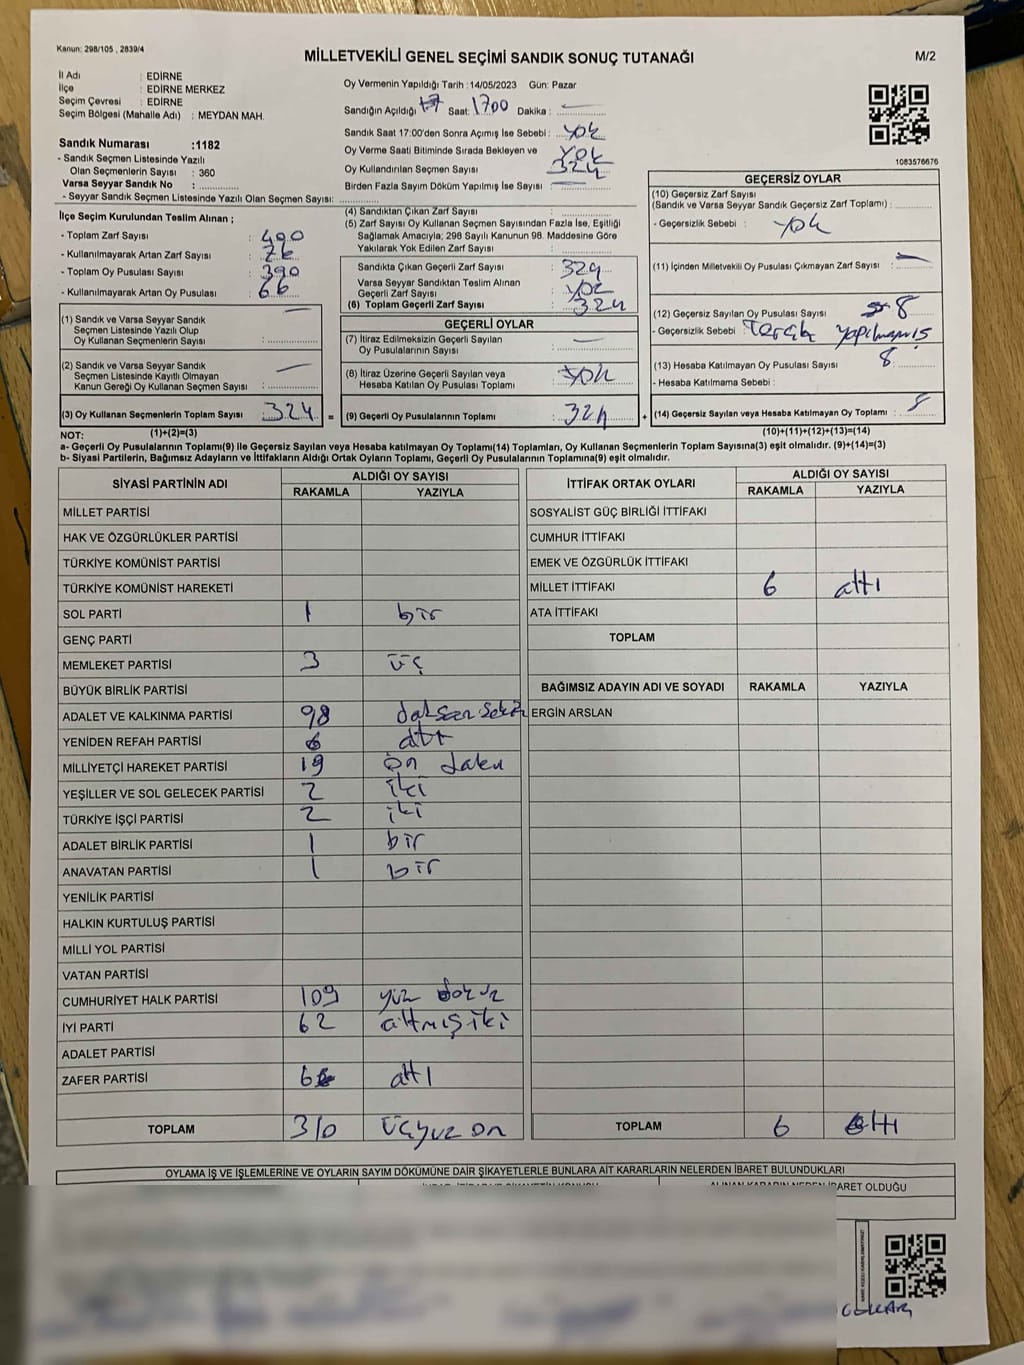 Kanun: 298/105 , 2839/4
MİLLETVEKİLİ GENEL SEÇİMİ SANDIK SONUÇ TUTANAĞI
M/2
İl Adı : EDİRNE
İlçe : EDİRNE MERKEZ
Seçim Çevresi : EDİRNE
Seçim Bölgesi (Mahalle Adı) : MEYDAN MAH.
Sandık Numarası :1182
- Sandık Seçmen Listesinde Yazılı
Olan Seçmenlerin Sayısı : 360
Varsa Seyyar Sandık No :
- Seyyar Sandık Seçmen Listesinde Yazılı Olan Seçmen Sayısı:
Oy Vermenin Yapıldığı Tarih :14/05/2023 Gün: Pazar
Sandığın Açıldığı Saat: 1700 Dakika :
Sandık Saat 17:00'den Sonra Açımış İse Sebebi : yok
Oy Verme Saati Bitiminde Sırada Bekleyen ve yok
Oy Kullandırılan Seçmen Sayısı 324
Birden Fazla Sayım Döküm Yapılmış İse Sayısı :
1083576676
İlçe Seçim Kurulundan Teslim Alınan ;
- Toplam Zarf Sayısı : 400
- Kullanılmayarak Artan Zarf Sayısı : 76
- Toplam Oy Pusulası Sayısı : 390
- Kullanılmayarak Artan Oy Pusulası : 66
(1) Sandık ve Varsa Seyyar Sandık
Seçmen Listesinde Yazılı Olup
Oy Kullanan Seçmenlerin Sayısı :
(2) Sandık ve Varsa Seyyar Sandık
Seçmen Listesinde Kayıtlı Olmayan
Kanun Gereği Oy Kullanan Seçmen Sayısı :
(3) Oy Kullanan Seçmenlerin Toplam Sayısı : 324 =
(4) Sandıktan Çıkan Zarf Sayısı :
(5) Zarf Sayısı Oy Kullanan Seçmen Sayısından Fazla İse, Eşitliği
Sağlamak Amacıyla; 298 Sayılı Kanunun 98. Maddesine Göre
Yakılarak Yok Edilen Zarf Sayısı :
Sandıkta Çıkan Geçerli Zarf Sayısı : 324
Varsa Seyyar Sandıktan Teslim Alınan
Geçerli Zarf Sayısı : yok
(6) Toplam Geçerli Zarf Sayısı : 324
GEÇERLİ OYLAR
(7) İtiraz Edilmeksizin Geçerli Sayılan
Oy Pusulalarının Sayısı :
(8) İtiraz Üzerine Geçerli Sayılan veya
Hesaba Katılan Oy Pusulası Toplamı : yok
(9) Geçerli Oy Pusulalarının Toplamı : 324 +
GEÇERSİZ OYLAR
(10) Geçersiz Zarf Sayısı
(Sandık ve Varsa Seyyar Sandık Geçersiz Zarf Toplamı) :
- Geçersizlik Sebebi : yok
(11) İçinden Milletvekili Oy Pusulası Çıkmayan Zarf Sayısı :
(12) Geçersiz Sayılan Oy Pusulası Sayısı : 8
- Geçersizlik Sebebi : Tercih yapılmamış
(13) Hesaba Katılmayan Oy Pusulası Sayısı : 8
- Hesaba Katılmama Sebebi :
(14) Geçersiz Sayılan veya Hesaba Katılmayan Oy Toplamı : 8
NOT: (1)+(2)=(3) (10)+(11)+(12)+(13)=(14)
a- Geçerli Oy Pusulalarının Toplamı(9) ile Geçersiz Sayılan veya Hesaba katılmayan Oy Toplamı(14) Toplamları, Oy Kullanan Seçmenlerin Toplam Sayısına(3) eşit olmalıdır. (9)+(14)=(3)
b- Siyasi Partilerin, Bağımsız Adayların ve İttifakların Aldığı Ortak Oyların Toplamı, Geçerli Oy Pusulalarının Toplamına(9) eşit olmalıdır.
SİYASİ PARTİNİN ADI ALDIĞI OY SAYISI
RAKAMLA YAZIYLA
MİLLET PARTİSİ
HAK VE ÖZGÜRLÜKLER PARTİSİ
TÜRKİYE KOMÜNİST PARTİSİ
TÜRKİYE KOMÜNİST HAREKETİ
SOL PARTİ 1 bir
GENÇ PARTİ
MEMLEKET PARTİSİ 3 üç
BÜYÜK BİRLİK PARTİSİ
ADALET VE KALKINMA PARTİSİ 98 doksan sekiz
YENİDEN REFAH PARTİSİ 6 altı
MİLLİYETÇİ HAREKET PARTİSİ 19 on dokuz
YEŞİLLER VE SOL GELECEK PARTİSİ 2 iki
TÜRKİYE İŞÇİ PARTİSİ 2 iki
ADALET BİRLİK PARTİSİ 1 bir
ANAVATAN PARTİSİ 1 bir
YENİLİK PARTİSİ
HALKIN KURTULUŞ PARTİSİ
MİLLİ YOL PARTİSİ
VATAN PARTİSİ
CUMHURİYET HALK PARTİSİ 109 yüz dokuz
İYİ PARTİ 62 altmış iki
ADALET PARTİSİ
ZAFER PARTİSİ 6 altı
TOPLAM 310 üçyüz on
İTTİFAK ORTAK OYLARI ALDIĞI OY SAYISI
RAKAMLA YAZIYLA
SOSYALİST GÜÇ BİRLİĞİ İTTİFAKI
CUMHUR İTTİFAKI
EMEK VE ÖZGÜRLÜK İTTİFAKI
MİLLET İTTİFAKI 6 altı
ATA İTTİFAKI
TOPLAM
BAĞIMSIZ ADAYIN ADI VE SOYADI RAKAMLA YAZIYLA
ERGİN ARSLAN
TOPLAM 6 altı
OYLAMA İŞ VE İŞLEMLERİNE VE OYLARIN SAYIM DÖKÜMÜNE DAİR ŞİKAYETLERLE BUNLARA AİT KARARLARIN NELERDEN İBARET BULUNDUKLARI
ALINAN KARARIN NEDEN İBARET OLDUĞU